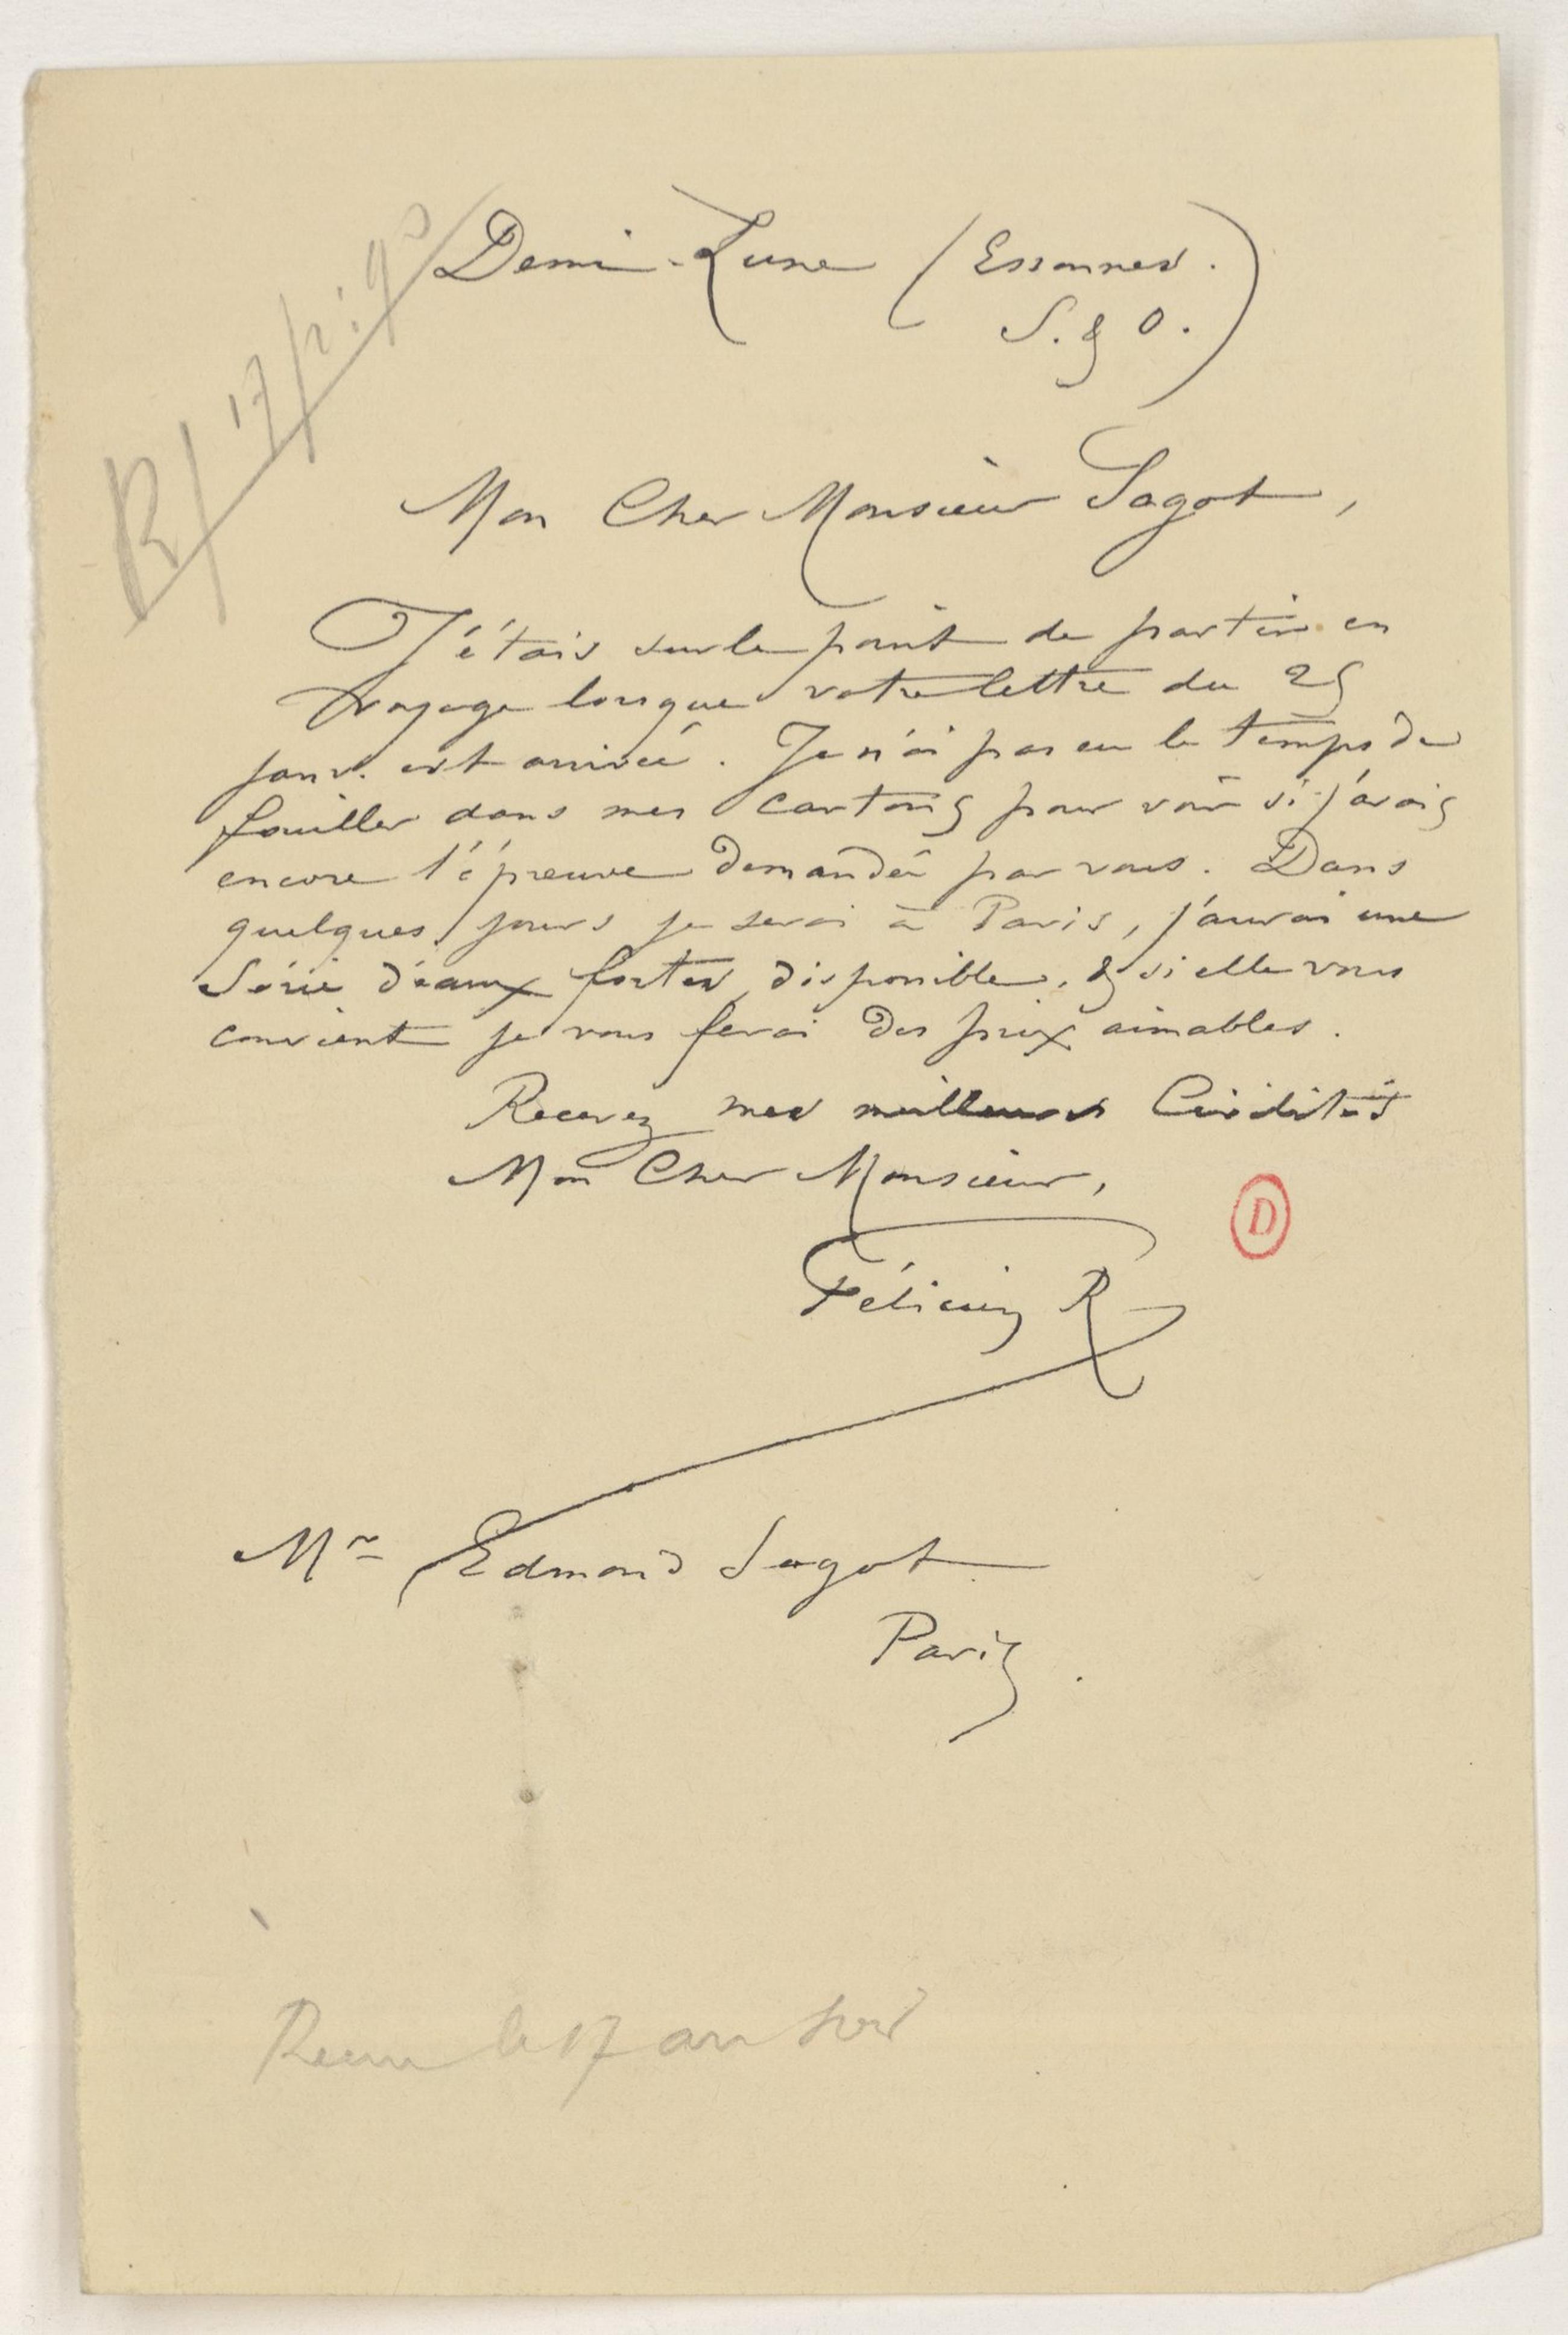 R/ 17/2. 90
Demi-Lune (Essonnes.
S. & O.)
Mon Cher Monsieur Sagot,
J'étais sur le point de partir en
voyage lorsque votre lettre du 25
janv. est arrivée. Je n'ai pas eu le temps de
fouiller dans mes cartons pour voir si j'avais
encore l'épreuve demandée par vous. Dans
quelques jours je serai à Paris, j'aurai une
Série d'eaux fortes disponible, & si elle vous
convient je vous ferai des prix aimables.
Recevez mes meilleures Civilités
Mon Cher Monsieur,
Félicien R
D
Mr Edmond Sagot
Paris.
le 17 au soir